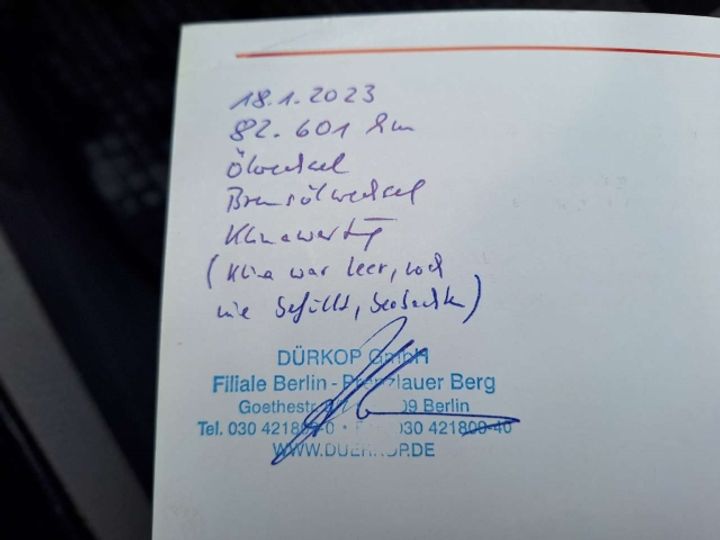 18.1.2023
82.601 km
Ölwechsel
Bremsölwechsel
Klimawartung
(Klima war leer, noch
nie befüllt, beobachten)
DÜRKOP GmbH
Filiale Berlin - Prenzlauer Berg
Goethestr. Berlin
Tel. 030 421809-0 · 030 421809-40
WWW.DUERKOP.DE